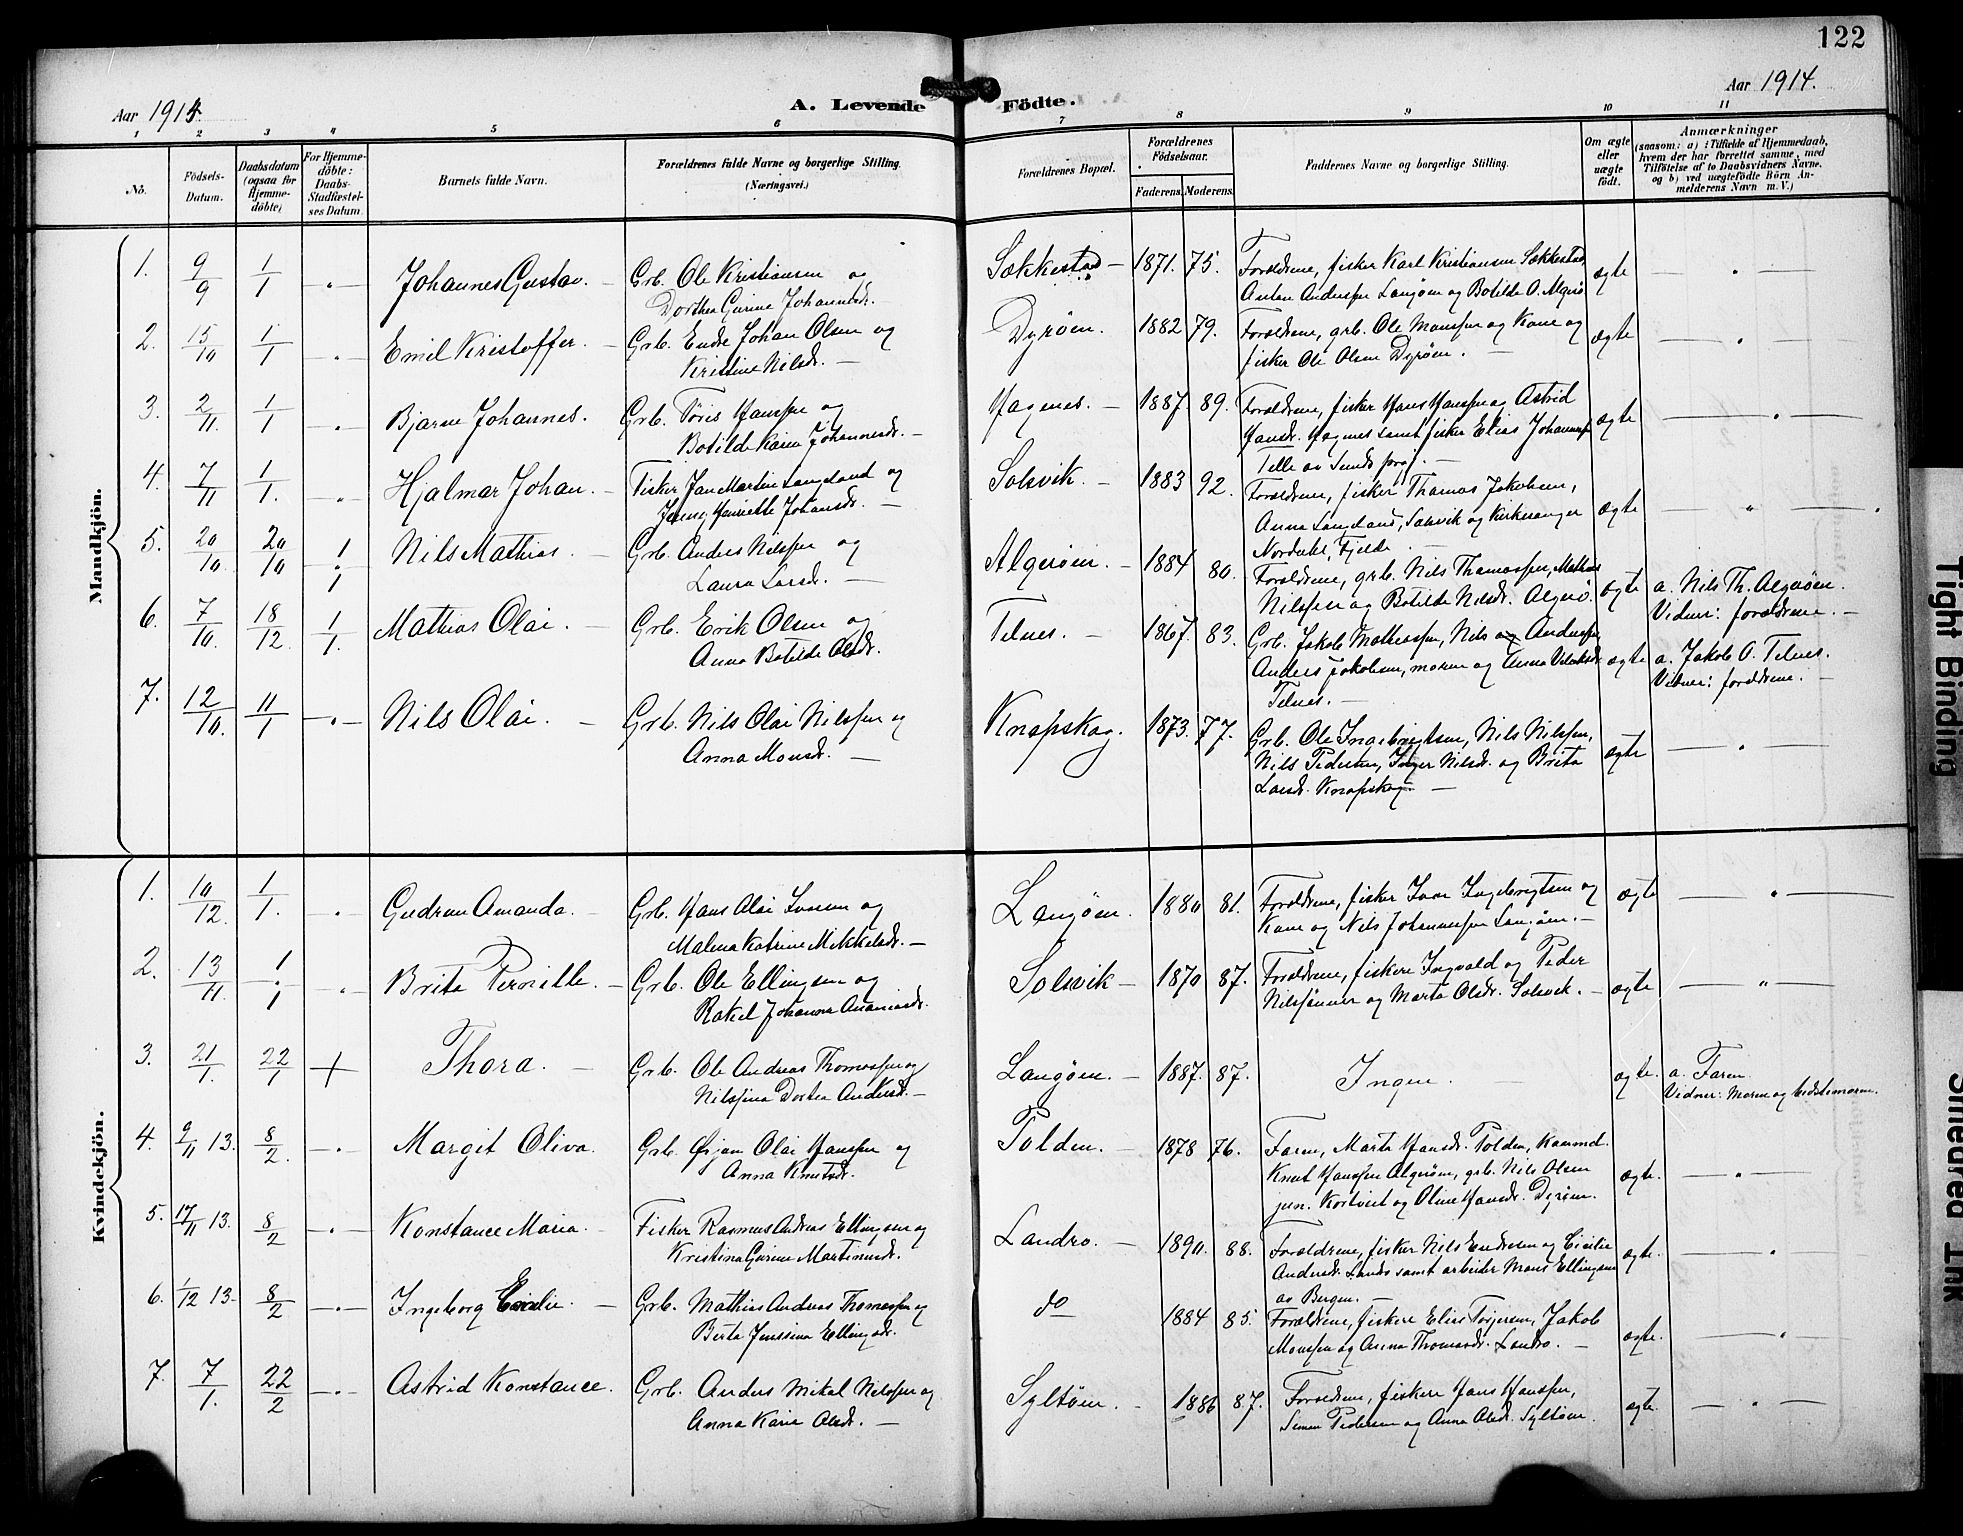 122
Aar 1914.
A. Levende Födte.
Aar 1914.
1 2 3 4 5 6 7 8 9 10 11
No.
Födsels-Datum.
Daabsdatum (ogsaa for Hjemme-döbte)
For Hjemme-döbte: Daabs-Stadfæstel-ses Datum.
Barnets fulde Navn.
Forældrenes fulde Navne og borgerlige Stilling.
(Næringsvei.)
Forældrenes Bopæl.
Forældrenes Födselsaar.
Faderens. Moderens.
Faddernes Navne og borgerlige Stilling.
Om ægte eller uægte födt.
Anmærkninger
(saasom: a) i Tilfælde af Hjemmedaab,
hvem der har forrettet samme, med
Tilföielse af to Daabsvidners Navne,
og b) ved uægtefödte Börn An-
melderens Navn m. V.)
Mandkjön.
1. 9/9 1/1 - " - Johannes Gustav. - Grb. Ole Kristiansen og
Dorthea Gurine Johannesdr.
Søkkestad - 1871. 75. Forældrene, fisker Karl Kristiansen Søkkestad,
Anton Anderssen Langøen og Botilde O. Algrø
ægte - " -
2. 15/10 1/1 " Emil Kristoffer. - Grb. Endre Johan Olsen og
Kristine Nilsdr. -
Dyrøen. 1882 79. Forældrene, grb. Ole Monssen og Kone og
fisker Ole Olsen Dyrøen. -
ægte - " -
3. 2/11. 1/1 " Bjarne Johannes. Grb. Toris Hanssen og
Botilde Karine Johannesdr. -
Hagenes. - 1887. 89. Forældrene, fisker Hans Hanssen og Astrid
Hansdr. Hagenes samt fisker Elias Johanness.
Telle av Sunds prgj. -
ægte - " -
4. 7/11 1/1. " Hjalmar Johan. - Fisker Jan Martin Langeland og
Jenny Henriette Johansdr. -
Solsvik. - 1883 92. Forældrene, fisker Thomas Jakobsen,
Anna Langeland, Solsvik og Kirkesanger
Nordahl, Fjelde. -
ægte - " -
5. 20/10 20/10 1/1 Nils Mathias. - Grb. Anders Nilssen og
Laura Larsdr. -
Algrøen. - 1884 80. Forældrene, grb. Nils Thomassen, Mathias
Nilssen og Botilde Nilsdr. Algrø.
ægte a. Nils Th. Algrøen.
Vidner: forældrene. -
6. 7/10 18/12 1/1. Mathias Olai. - Grb. Erik Olsen og
Anna Botilde Olsdr.
Telnes. - 1867. 83. Grb. Jakob Mathiassen, Nils og Anderssen,
Anders Jakobsen, moren og Anna
Telnes. -
ægte a. Jakob O. Telnes.
Vidner: forældrene. -
7. 12/10. 11/1 - " - Nils Olai. - Grb. Nils Olai Nilssen og
Anna Monsdr. -
Knapskog. 1873. 77. Grb. Ole Ingebrigtsen, Nils Nilssen,
Nils Pedersen, Inger Nilsdr. og Brita
Larsdr. Knapskog. -
ægte - " -
Kvindekjön.
1. 10/12. 1/1. " Gudrun Amanda. - Grb. Hans Olai Ivarsen og
Malena Katrine Mikkelsdr. -
Langøen. 1880 81. Forældrene, fisker Ivar Ingebrigtsen og
Kone og Nils Johannessen Langøen. -
ægte - " -
2. 13/11. 1/1 - " - Brita Pernille. - Grb. Ole Ellingsen og
Rakel Johanna Ananiasdr.
Solsvik - 1870 87. Forældrene, fiskere Ingvald og Peder
Nilssønner og Marta Olsdr. Solsvik. -
ægte - " -
3. 21/1. 22/1 + Thora. - Grb. Ole Andreas Thomassen og
Nilssina Dortea Andersdr. -
Langøen. - 1887. 87. Ingen.
ægte. a. Faren.
Vidner: Moren og bedstemoren.
4. 9/11 13. 8/2. - " - Margit Oliva. Grb. Ørjan Olai Hanssen og
Anna Knutsdr.
Tolden. - 1878 76. Faren, Marta Hansdr. Tolden,
Knut Hanssen Algrøen, grb. Nils Olsen
jun. Kortveit og Oline Hansdr. Dyrøen.
ægte. - " -
5. 17/11 13. 8/2 - " - Konstance Maria. - Fisker Rasmus Andreas Ellingsen og
Kristina Gurine Martinusdr.
Landro. - 1890. 88. Forældrene, fisker Nils Endresen og Cecilie
Andersdr. Landro samt arbeider Mons Ellingsen
av Bergen. -
ægte. - " -
6. 1/12 13 - 8/2 - " - Ingeborg Emilie. - Grb. Mathias Andreas Thomassen og
Berta Jenssina Ellingsdr.
do 1884 85. Forældrene, fiskere Elias Torjersen, Jakob
Monssen og Anna Thomasdr. Landro. -
ægte. - " -
7. 7/1. 22/2 - " - Astrid Konstance. Grb. Anders Mikal Nilssen og
Anna Karine Olsdr. -
Syltøen. - 1886 87. Forældrene, fiskere Hans Hanssen,
Simon Pedersen og Anna Olsdr. Syltøen.
ægte. - " -
Tight Binding
Smeared Ink